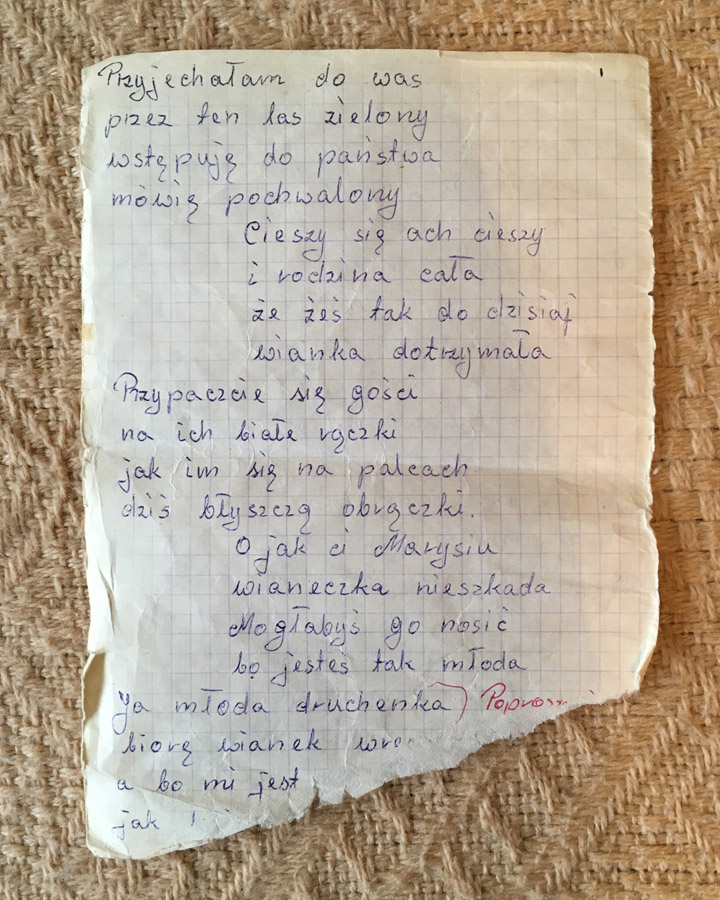 Przyjechałam do was
przez ten las zielony
wstępuję do państwa
mówię pochwalony
Cieszy się ach cieszy
i rodzina cała
że żeś tak do dzisiaj
wianka dotrzymała
Przypaczcie się gości
na ich białe rączki
jak im się na palcach
dziś błyszczą obrączki.
O jak ci Marysiu
wianeczka nieszkada
Mogłabyś go nosić
bo jesteś tak młoda
Ja młoda druchenka)
biorę wianek
a bo mi jest
jak